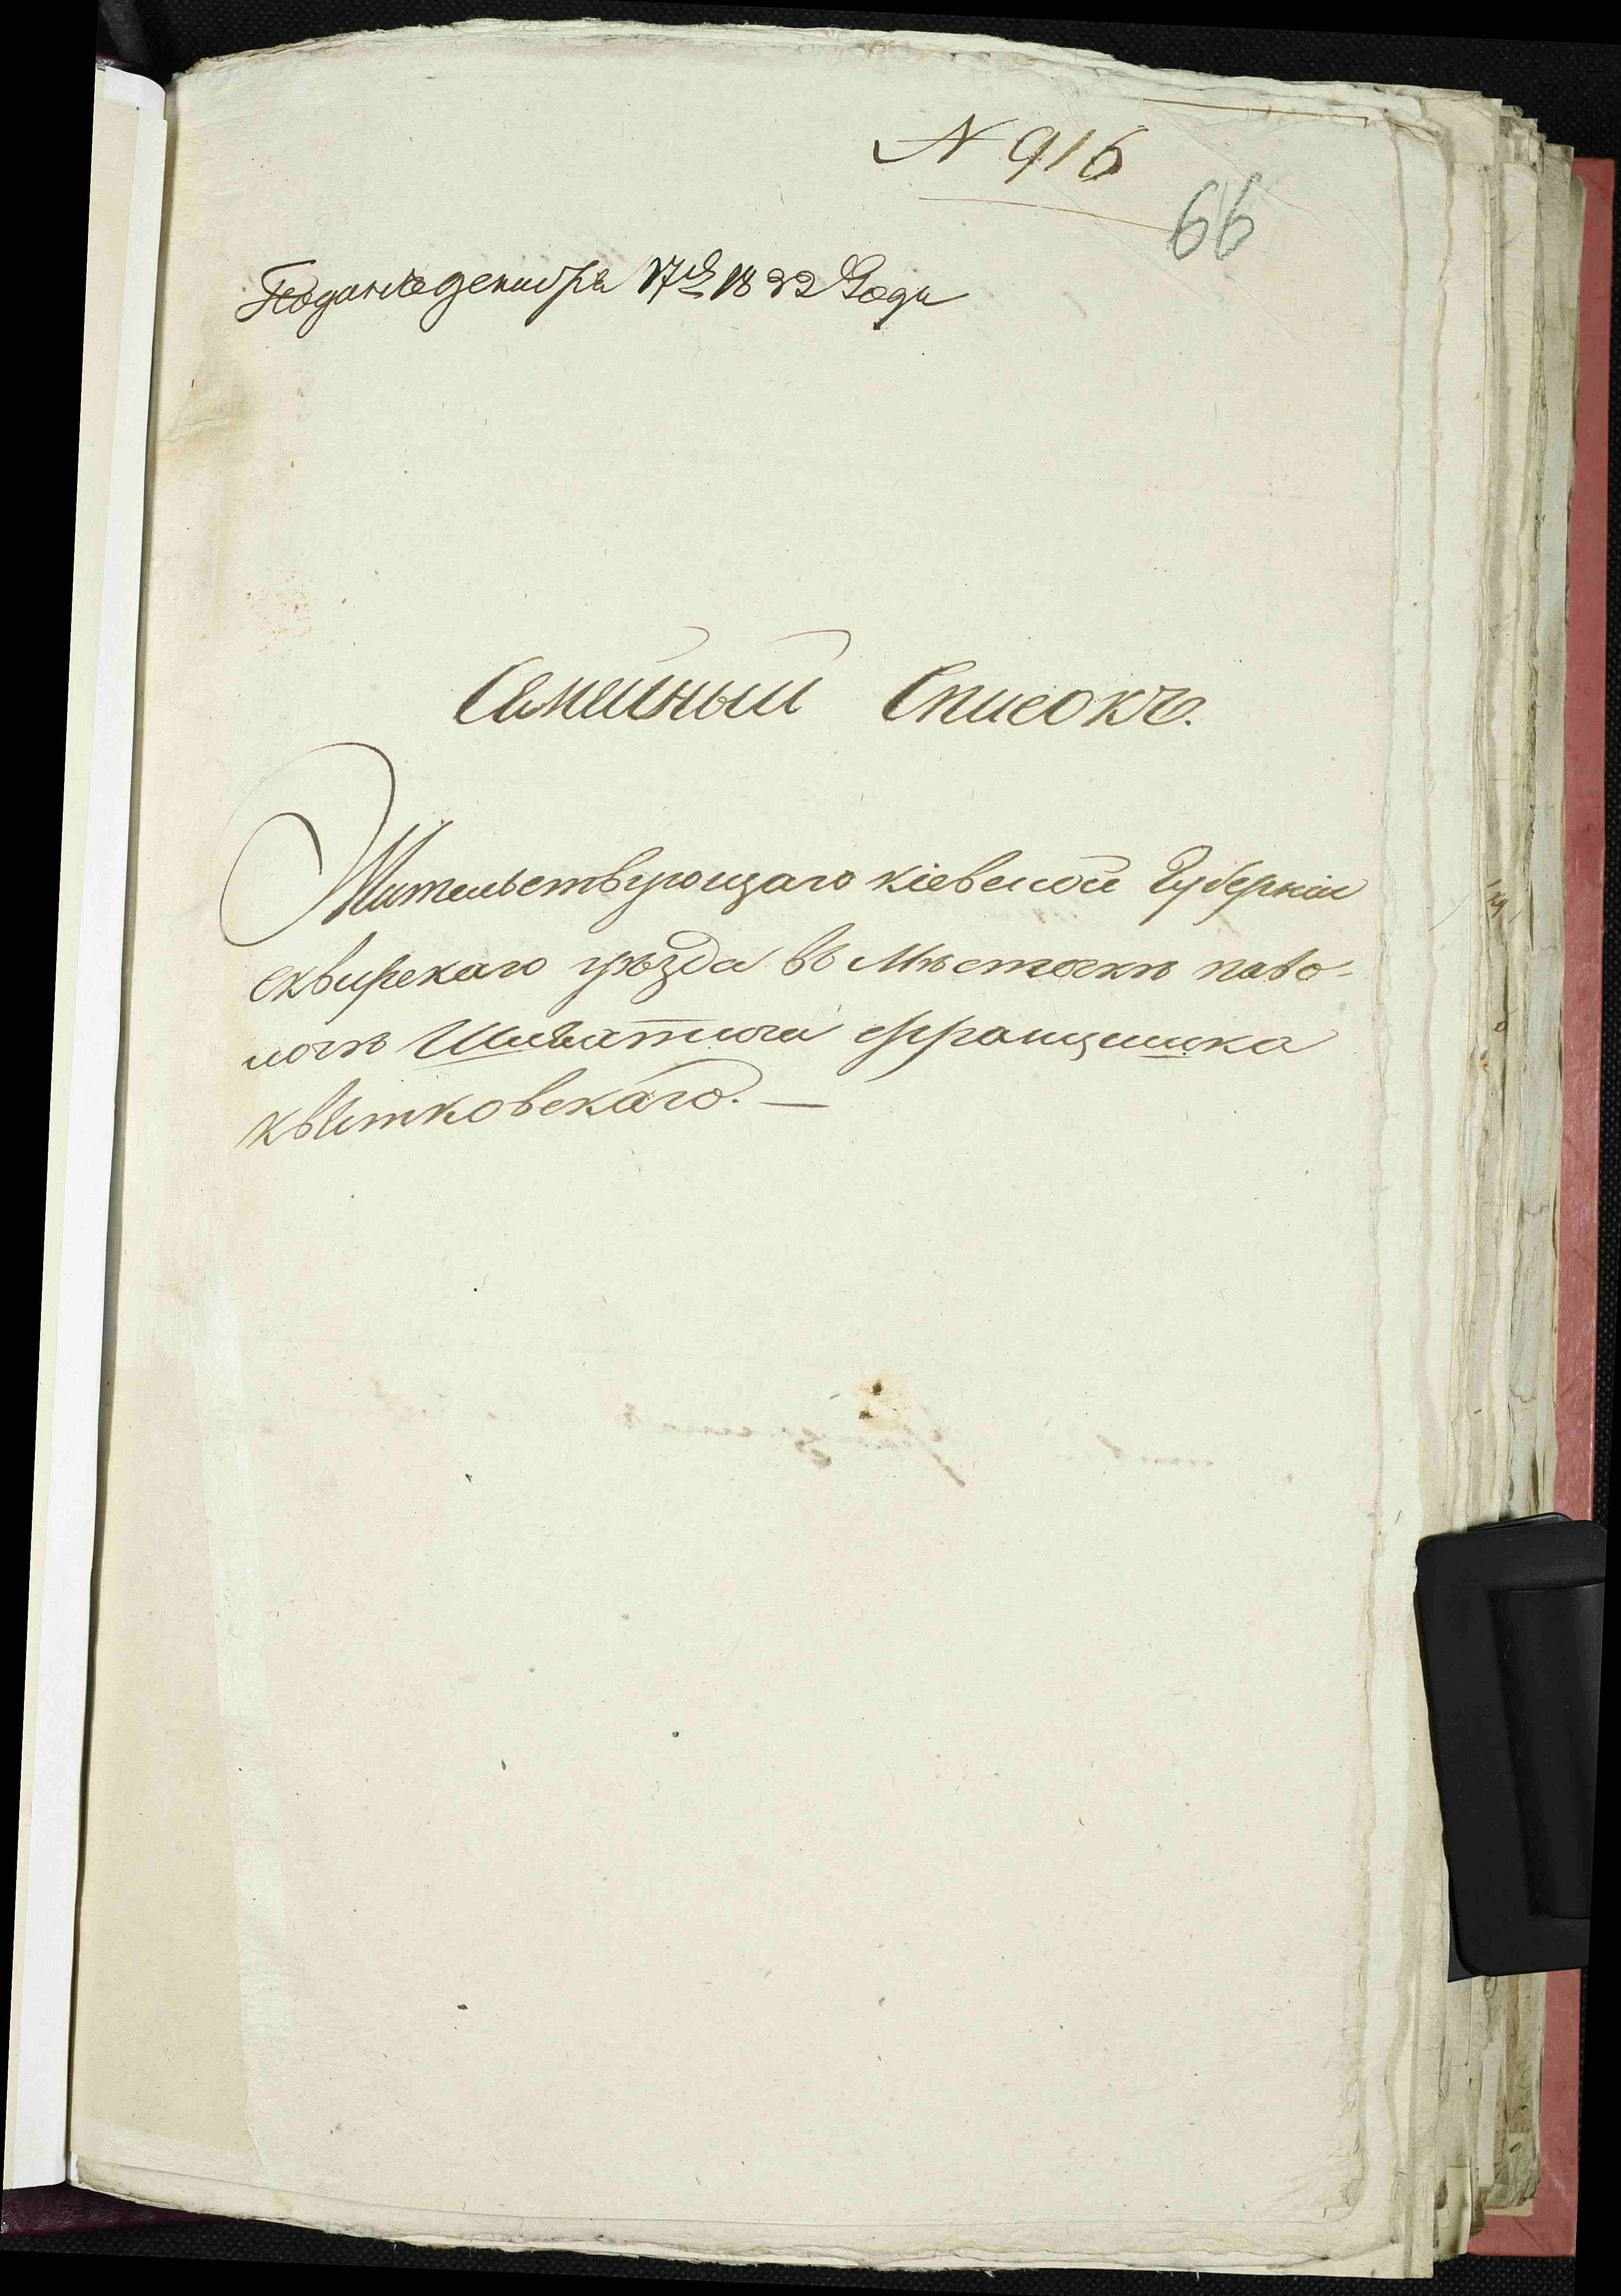 N 916
66
Поданъ декабря 17д 1832 Года
Семейный Списокъ.
Жительствующаго кіевской Губерніи
сквирскаго уѣзда въ Мѣстечкѣ паво-
лочѣ Шляхтича Францишка
квѣтковскаго. —